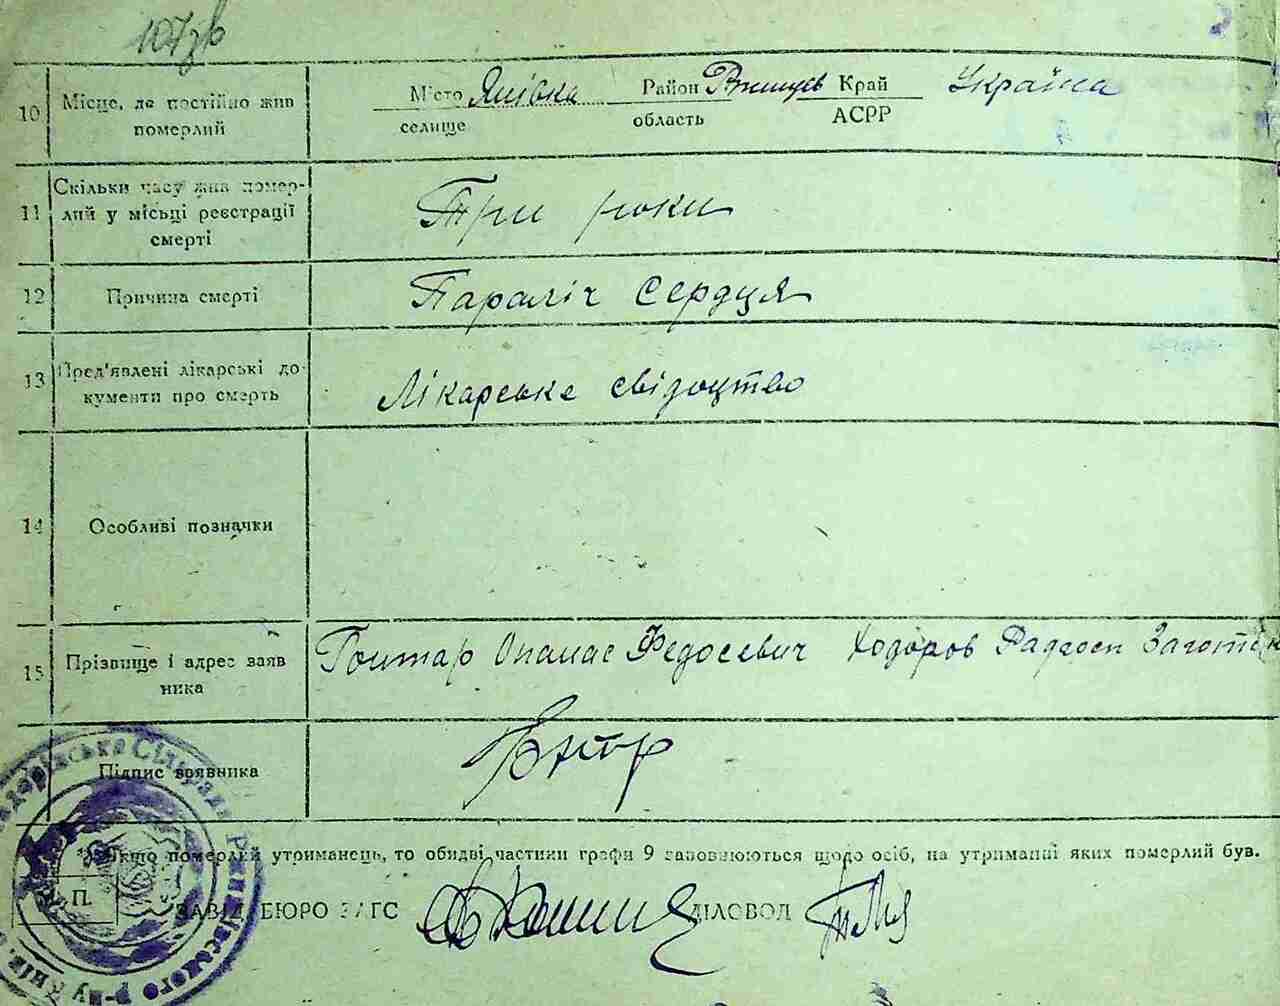 107зв
10 Місце, де постійно жив померлий
Місто Яшівка Район Ржищев Край Україна
селище область АСРР
11 Скільки часу жив помер-
лий у місці реєстрації
смерті
Три роки
12 Причина смерті Параліч Сердця
13 Пред'явлені лікарські до-
кументи про смерть
Лікарське свідоцтво
14 Особливі позначки
15 Прізвище і адрес заяв
ника
Гонтар Опанас Федосевич Ходоров Радгосп
Підпис заявника
Якщо померлий утриманець, то обидві частини графи 9 заповнюються щодо осіб, на утриманні яких померлий був.
П.
ЗАВІД. БЮРО ЗАГС ДІЛОВОД
Сільрада